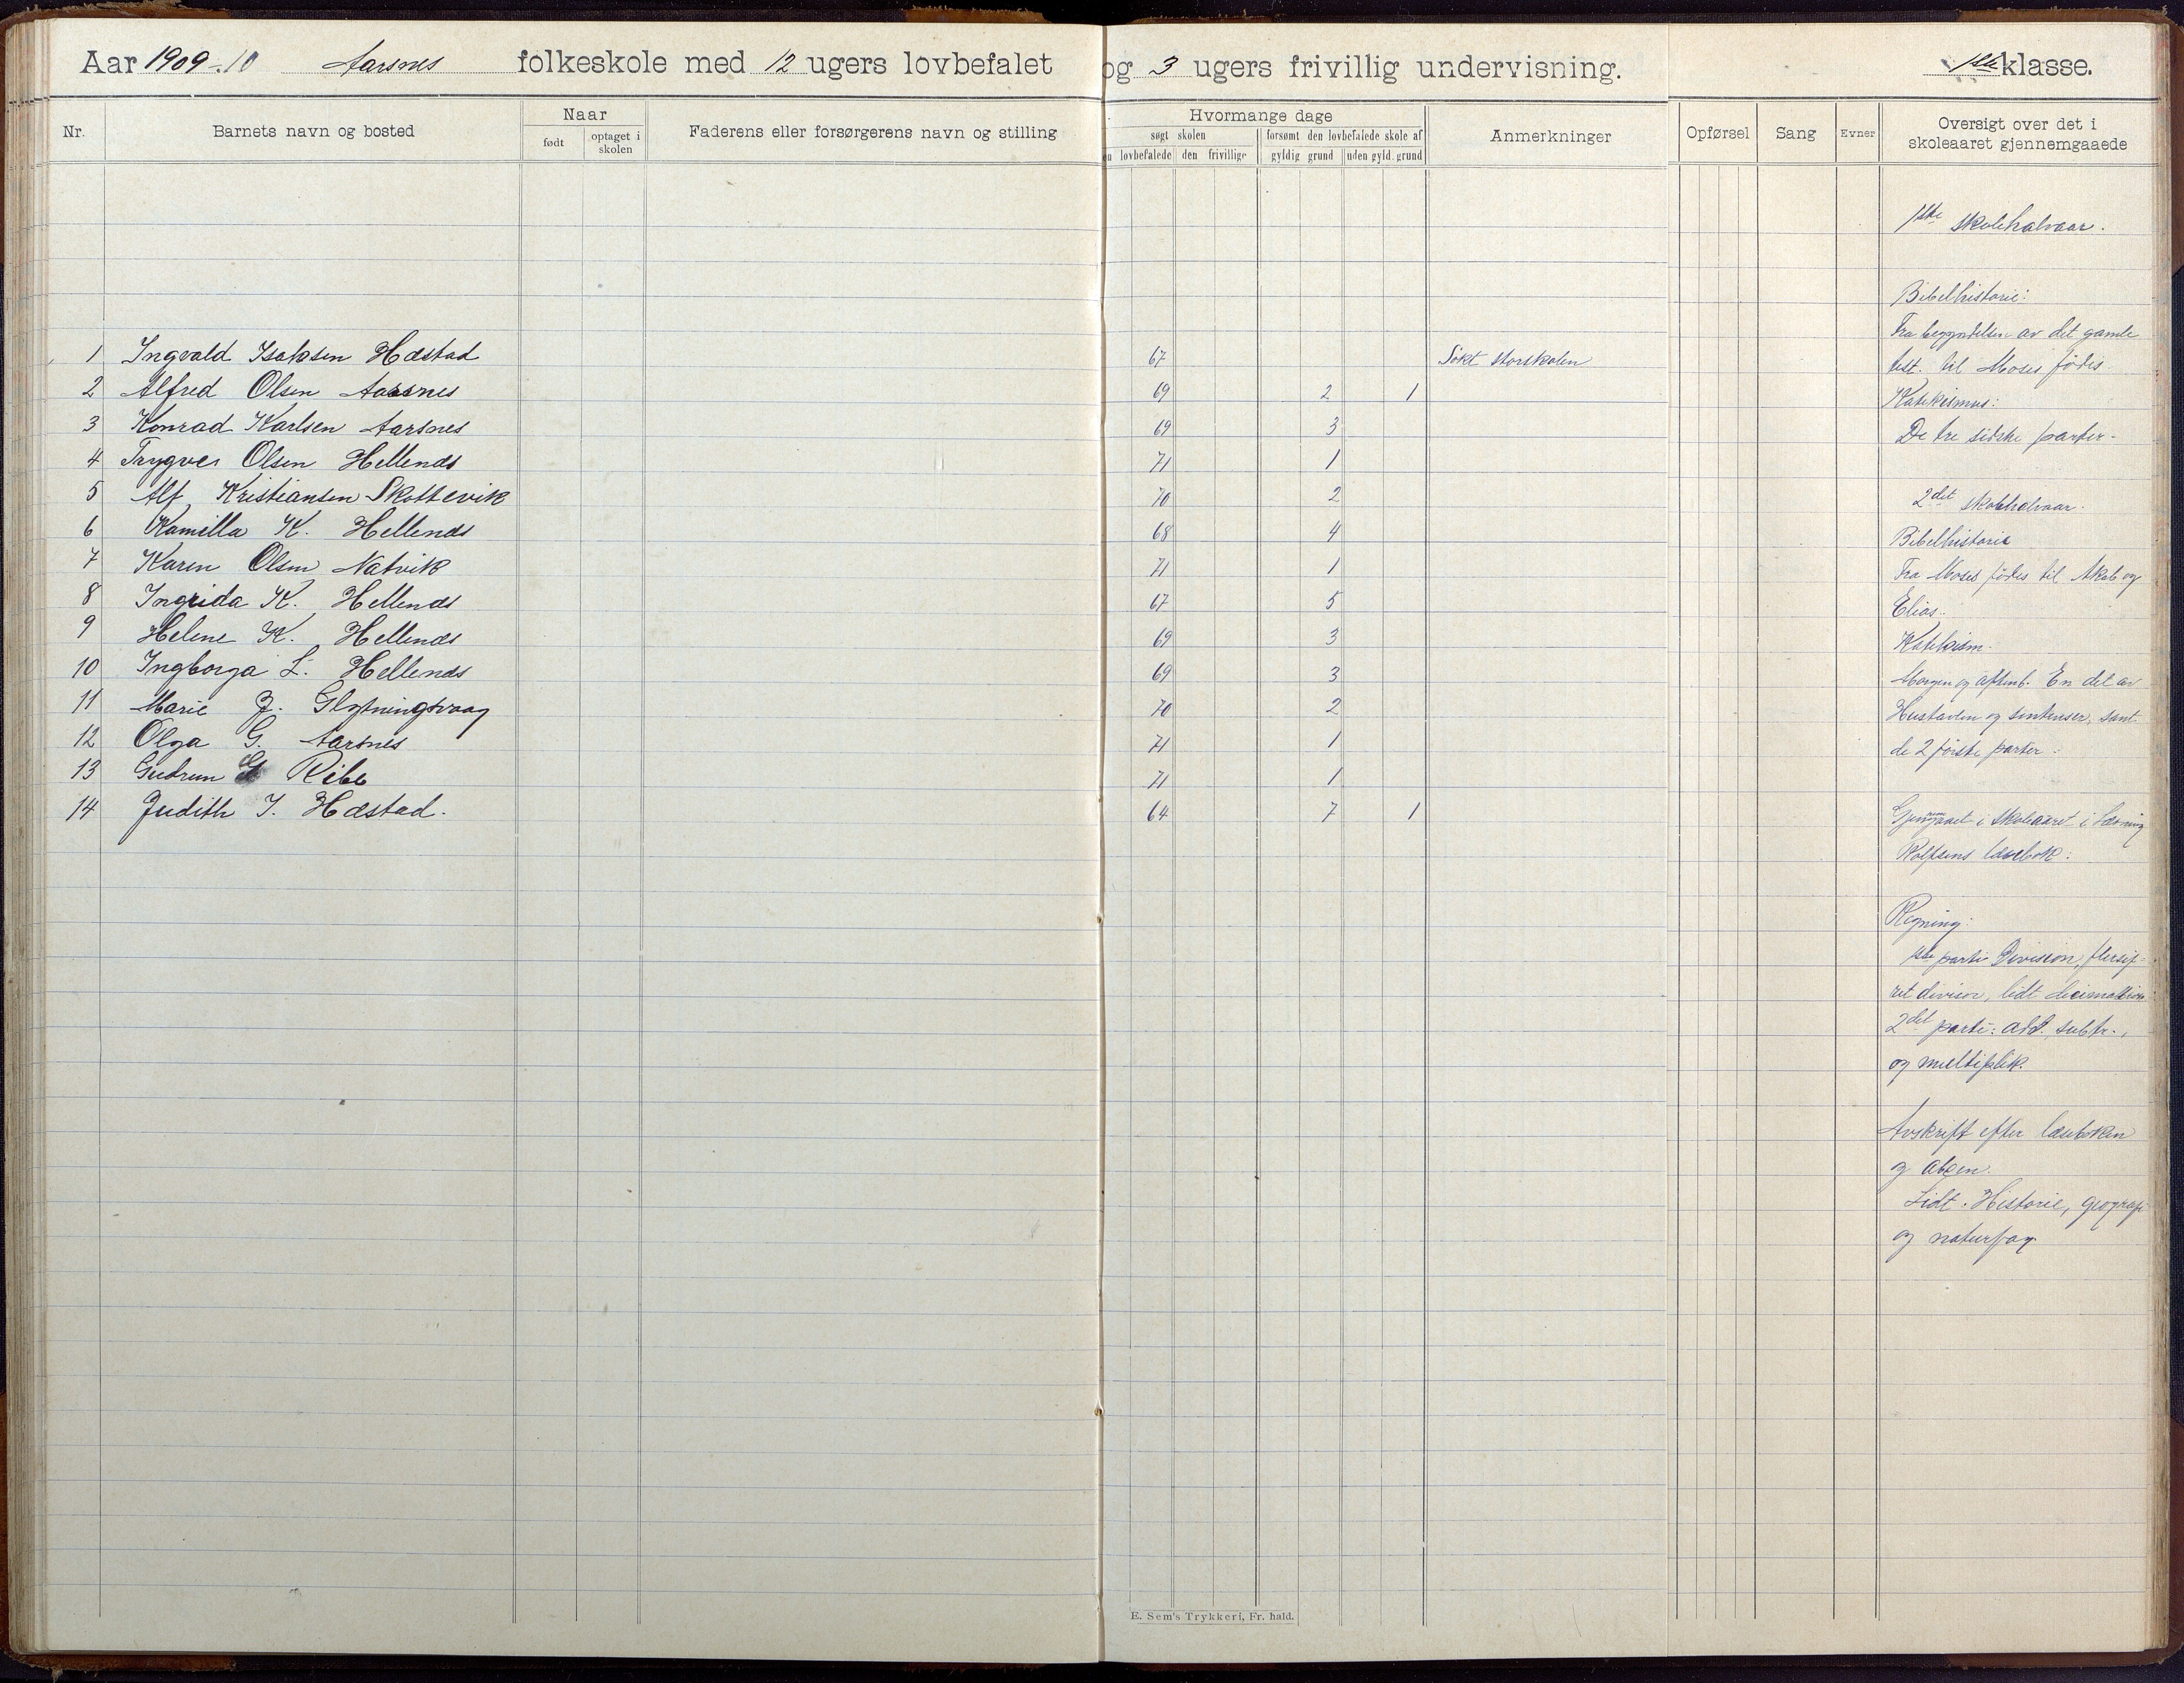 Aar 1909-10 Aarsnes folkeskole med 12 ugers lovbefalet og 3 ugers frivillig undervisning. 1ste klasse.
Nr. Barnets navn og bosted Naar født optaget i skolen Faderens eller forsørgerens navn og stilling Hvormange dage søgt skolen lovbefalede den frivillige forsømt den lovbefalede skole af gyldig grund uden gyld. grund Anmerkninger Opførsel Sang Evner Oversigt over det i skoleaaret gjennemgaaede
1 Ingvald Isaksen Hæstad 67 Søkt storskolen
2 Alfred Olsen Aarsnes 69 2 1
3 Konrad Karlsen Aarsnes 69 3
4 Trygve Olsen Hellenes 71 1
5 Alf Kristiansen Skottevik 70 2
6 Kamilla K. Hellenes 68 4
7 Karen Olsen Natvik 71 1
8 Ingrida K. Hellenes 67 5
9 Helene K. Hellenes 69 3
10 Ingborga L. Hellenes 69 3
11 Marie J. 70 2
12 Olga G. Aarsnes 71 1
13 Gudrun G Ribe 71 1
14 Judith I. Hæstad. 64 7 1
1ste skolehalvaar.
Bibelhistorie:
Fra begyndelsen av det gamle
test. til Moses fødes
Katekismus:
De tre sidste parter.
2det skolehalvaar.
Bibelhistorie
Fra Moses fødes til Akab og
Elias.
Katekism.
Morgen og aftenb. En del av
Hustavlen og sentenser, samt
de 2 første parter.
Gjennemgaaet i skoleaaret i læsning
Rolfsens læsebok:
Regning:
1ste parti Division, flersif-
ret divisor, lidt
2det parti: add. subtr.,
og multiplik.
Avskrift efter læseboken
og abcen.
Lidt Historie, geografi
og naturfag.
E. Sem's Trykkeri, Fr. hald.